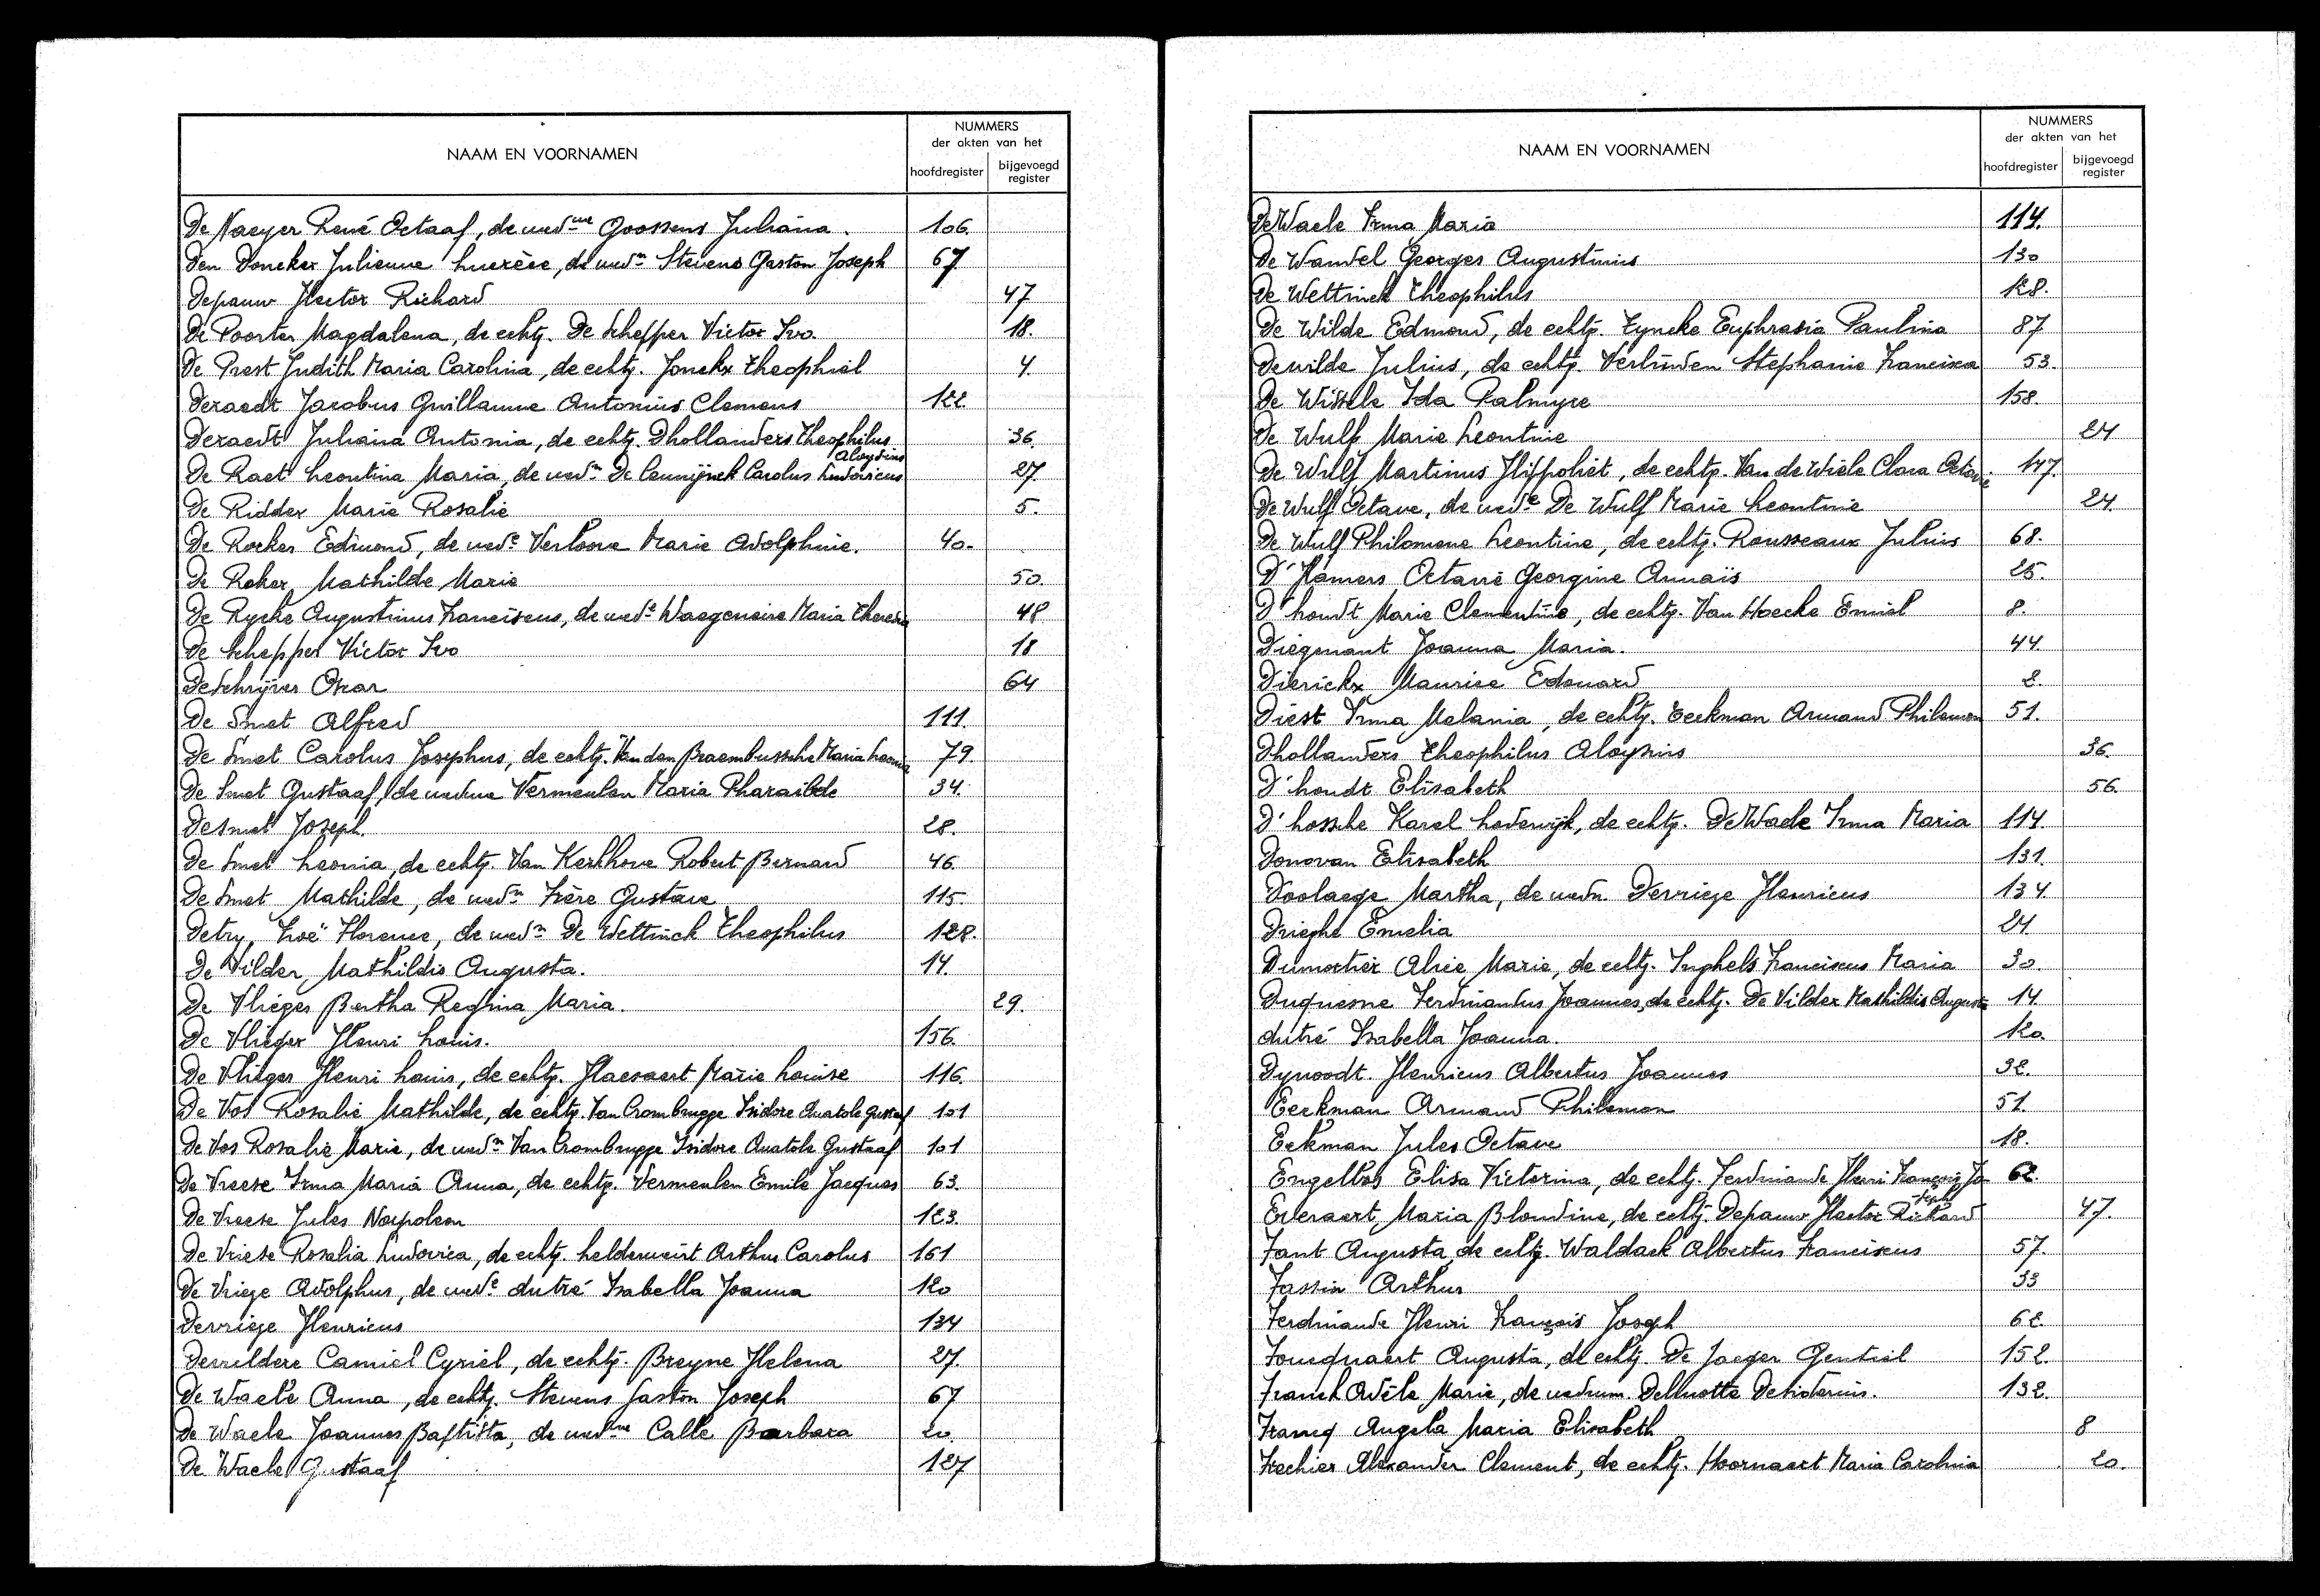 NAAM EN VOORNAMEN
NUMMERS
der akten van het
hoofdregister
bijgevoegd
register
De Naeyer René Octaaf, de wed.we Goossens Juliana. 106.
Den Doncker Julienne Lucrèce, de wedn Stevens Gaston Joseph 67
Depauw Hector Richard 47
De Poorter Magdalena, de echtg. De Schepper Victor Ivo. 18.
De Prest Judith Maria Carolina, de echtg. Jonckx Theophiel 4.
Deraedt Jacobus Guillaume Antonius Clemens 122
Deraedt Juliana Antonia, de echtg. Dhollanders Theophilus Aloysius 36.
De Raet Leontina Maria, de wedn De Ceuninck Carolus Ludovicus 27.
De Ridder Marie Rosalie 5.
De Rocker Edmond, de wede Verloove Marie Adolphine. 40.
De Roker Mathilde Marie 50.
De Rycke Augustinus Franciscus, de wede Waegeneire Maria Theresia 48
De Schepper Victor Ivo 18
De Schrijver Oscar 64
De Smet Alfred 111.
De Smet Carolus Josephus, de echtg. Van den Braembussche Maria Leonia 79.
De Smet Gustaaf, de weduwe Vermeulen Maria Pharailde 34.
Desmet Joseph. 28.
De Smet Leonia, de echtg. Van Kerkhove Robert Bernard 46.
De Smet Mathilde, de wedn Frère Gustave 115.
Detry, Zoë Florence, de wedn De Wettinck Theophilus 128.
De Vilder Mathildis Augusta. 14.
De Vlieger Bertha Regina Maria. 29.
De Vlieger Henri Louis. 156.
De Vlieger Henri Louis, de echtg. Haesaert Marie Louise 116.
De Vos Rosalie Mathilde, de echtg. Van Crombrugge Isidore Anatole Gustaaf 101
De Vos Rosalie Marie, de wedn Van Crombrugge Isidore Anatole Gustaaf 101
De Vreese Irma Maria Anna, de echtg. Vermeulen Emile Jacques 63.
De Vreese Jules Napoleon 123.
De Vriese Rosalia Ludovica, de echtg. Helderweirt Arthur Carolus 161
De Vriege Adolphus, de wede dutré Isabella Joanna 120
Devriege Henricus 134
Deweldere Camiel Cyriel, de echtg. Breyne Helena 27.
De Waele Anna, de echtg. Stevens Gaston Joseph 67
De Waele Joannes Baptista, de wed.we Calle Barbara 20.
De Waele Gustaaf 127
NAAM EN VOORNAMEN
NUMMERS
der akten van het
hoofdregister
bijgevoegd
register
De Waele Irma Maria 114.
De Wandel Georges Augustinus 130
De Wettinck Theophilus 128.
De Wilde Edmond, de echtg. Eyncke Euphrasia Paulina 87
Dewilde Julius, de echtg. Verlinden Stephanie Francisca 53.
De Wissele Ida Palmyre 158.
De Wulf Marie Leontine 24
De Wulf Martinus Hippoliet, de echtg. Van de Wiele Clara Octavie 147.
De Wulf Octave, de wede De Wulf Marie Leontine 24.
De Wulf Philomene Leontine, de echtg. Rousseaux Julius 68.
D'Hamers Octavie Georgine Annaïs 25.
D'hondt Marie Clementine, de echtg. Van Hoecke Emiel 8.
Diegenant Joanna Maria. 44.
Dierickx Maurice Edouard 2.
Diest Irma Melania, de echtg. Eeckman Armand Philemon 51.
Dhollanders Theophilus Aloysius 36.
D'hondt Elisabeth 56.
D'hossche Karel Lodewijk, de echtg. De Waele Irma Maria 114
Donovan Elisabeth 131.
Doolaege Martha, de wedn. Devriege Henricus 134.
Drieghe Emelia 24
Dumortier Alice Marie, de echtg. Inghels Franciscus Maria 30.
Duquesne Ferdinandus Joannes, de echtg. De Vilder Mathildis Augusta 14.
dutré Isabella Joanna. 120.
Dynoodt Henricus Albertus Joannes 32.
Eeckman Armand Philemon 51.
Eekman Jules Octave 18.
Engelbos Elisa Victorina, de echtg. Ferdinande Henri François Joseph 62.
Everaert Maria Blondine, de echtg. Depauw Hector Richard 47.
Fant Augusta, de echtg. Waldack Albertus Franciscus 57.
Fassin Arthur 33
Ferdinande Henri François Joseph 62.
Foucquaert Augusta, de echtg. De Jaeger Gentiel 152.
Franck Adèle Marie, de weduwn. Delmotte Desiderius. 132.
Francq Angela Maria Elisabeth 8
Frechier Alexander Clement, de echtg. Hoornaert Maria Carolina 20.